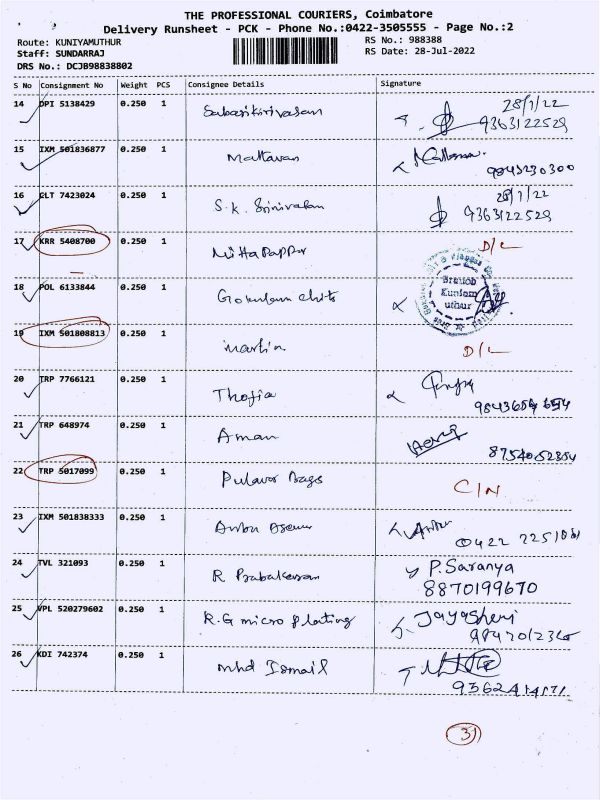 THE PROFESSIONAL COURIERS, Coimbatore
Delivery Runsheet - PCK - Phone No.:0422-3505555 - Page No.:2
Route: KUNIYAMUTHUR
RS No.: 988388
Staff: SUNDARRAJ
RS Date: 28-Jul-2022
DRS No.: DCJB98838802
S No Consignment No Weight PCS Consignee Details Signature
14 DPI 5138429 0.250 1 28/7/22
9363122529
15 IXM 501836877 0.250 1
9843230300
16 RLT 7423024 0.250 1 S.K. Srinivasan 28/7/22
9363122529
17 KRR 5408700 0.250 1 D/L
18 POL 6133844 0.250 1 Gokulam chits
Branch
Kuniam
uthur
19 IXM 501808813 0.250 1 martin D/L
20 TRP 7766121 0.250 1 Thofia
21 TRP 648974 0.250 1 Aman
22 TRP 5017099 0.250 1 Pulavar Bags C/N
23 IXM 501838333 0.250 1
0422
24 TVL 321093 0.250 1 R Prabakaran P. Saranya
8870199670
25 VPL 520279602 0.250 1 R.G micro plating Jayashri
26 KDI 742374 0.250 1 mhd Ismail
31